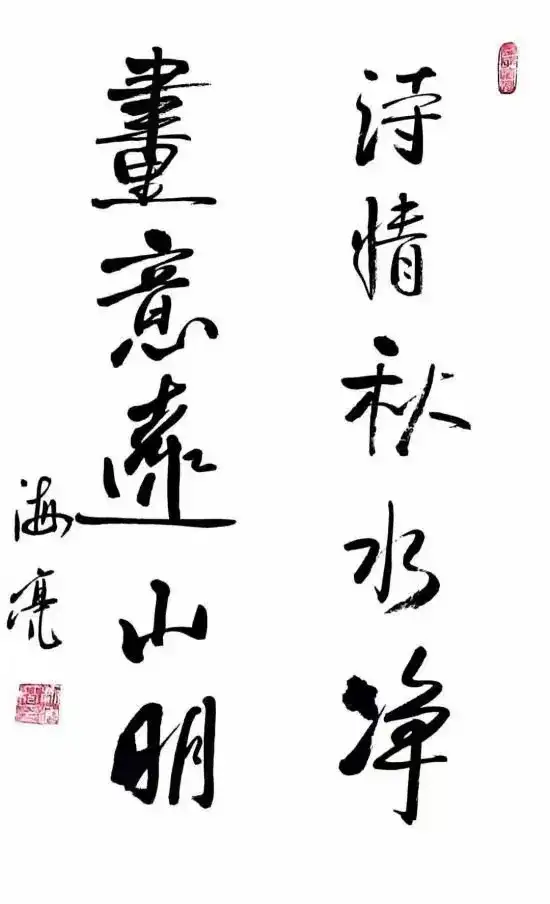 诗情秋水净
畫意遠山明
海亮